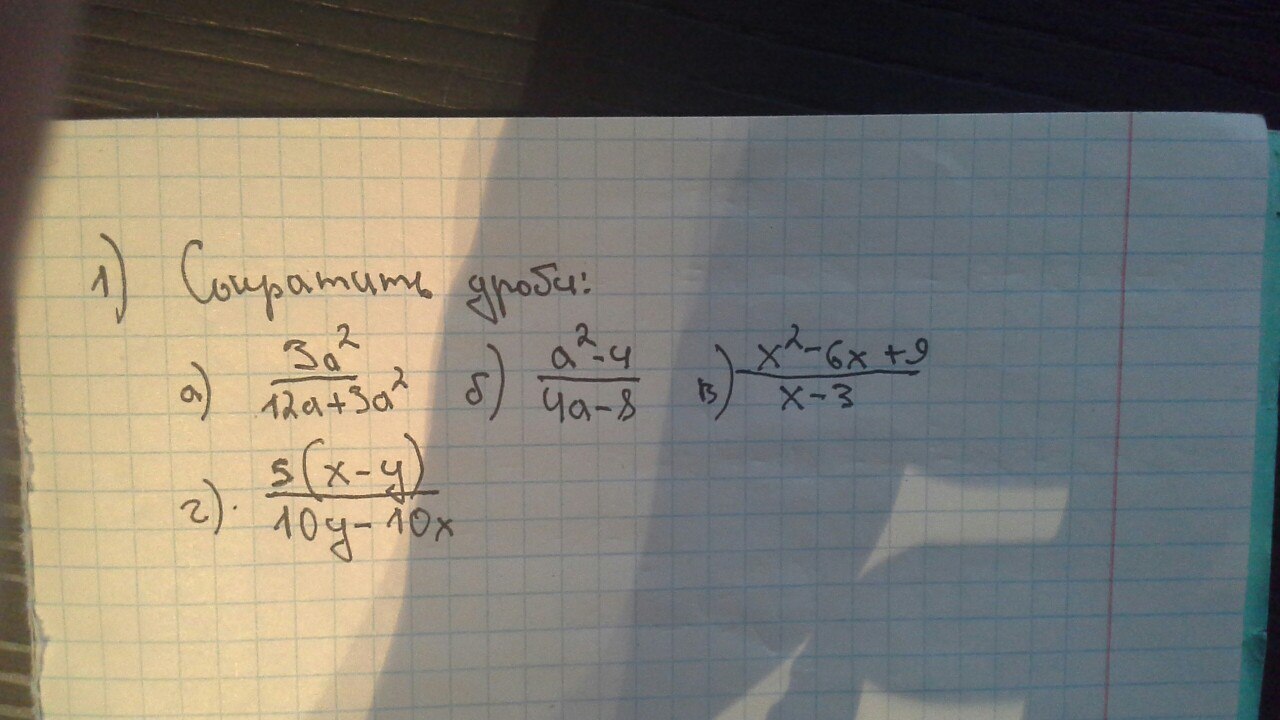 1) Сократить дроби:
а) 3a²/12a+3a² б) a²-4/4a-8 в) x²-6x+9/x-3
г). 5(x-y)/10y-10x